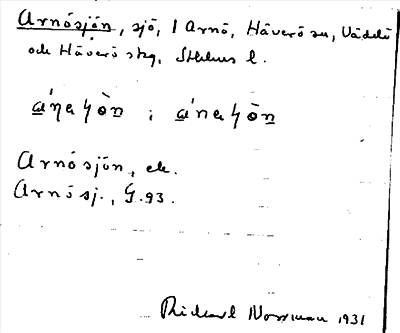 Arnösjön, sjö, 1 Arnö, Häverö sn, Väddö
och Häverö skg, Sthlms l.
Arnösjön, ek.
Arnösj., G.93.
Rickard Norrman 1931